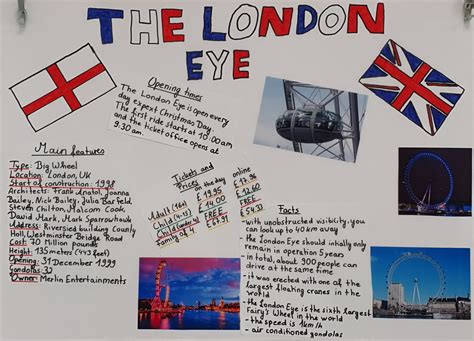 THE LONDON
EYE
Opening times
The London Eye is open every
day expext Christmas Day.
The first ride starts at 10:00 am
and the ticket office opens at
9:30 am.
Main features
Type: Big Wheel
Location: London, UK
Start of construction: 1998
Architects: Frank Anatol, Joanna
Bailey, Nick Bailey, Julia Barfield
Steven Chilton, Malcom Cook,
David Mark, Mark Sparrowhawk
Address: Riverside building County
Hall, Westminster Bridge Road
Cost: 70 Million pounds
Height: 135 meters (443 feet)
Opening: 31 December 1999
Gondolas: 32
Owner: Merlin Entertainments
Tickets and
Prices
on the day
online
Adult (16+)
Child (4-15)
FREE
FREE
Family of 4
Facts
- with unobstructed visibility, you
can look up to 40 km away
- the London Eye should initially only
remain in operation 5 years
- in total, about 800 people can
drive at the same time
- it was erected with one of the
largest floating cranes in the
world
- the London Eye is the sixth largest
Fairy's Wheel in the world
- the speed is 1km/h
- air conditioned gondolas